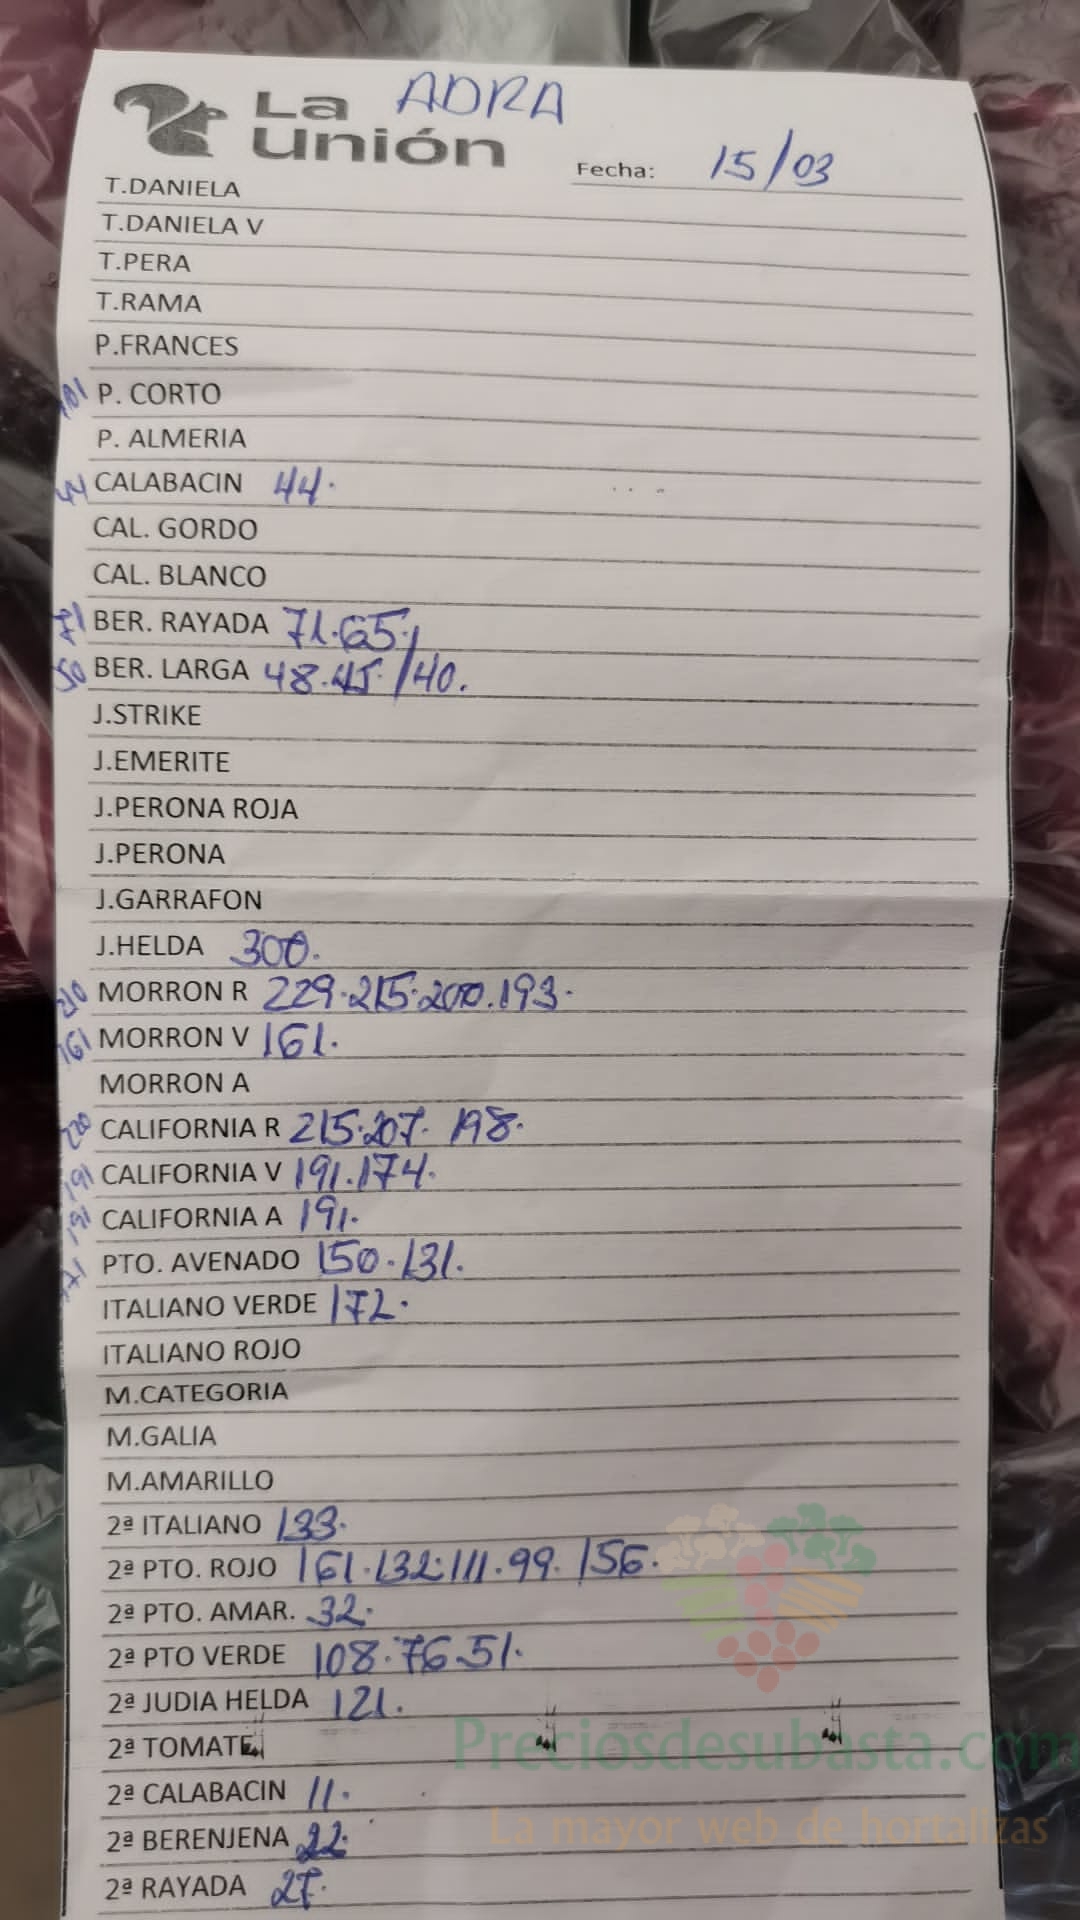 ADRA
La
unión
Fecha: 15/03
T.DANIELA
T.DANIELA V
T.PERA
T.RAMA
P.FRANCES
101 P. CORTO
P. ALMERIA
44 CALABACIN 44.
CAL. GORDO
CAL. BLANCO
71 BER. RAYADA 71.65./
50 BER. LARGA 48.45./40.
J.STRIKE
J.EMERITE
J.PERONA ROJA
J.PERONA
J.GARRAFON
J.HELDA 300.
210 MORRON R 229.215.200.193.
161 MORRON V 161.
MORRON A
220 CALIFORNIA R 215.207. 198.
191 CALIFORNIA V 191.174.
191 CALIFORNIA A 191.
PTO. AVENADO 150.131.
171 ITALIANO VERDE 172.
ITALIANO ROJO
M.CATEGORIA
M.GALIA
M.AMARILLO
2ª ITALIANO 133.
2ª PTO. ROJO 161.132.111.99. 156.
2ª PTO. AMAR. 32.
2ª PTO VERDE 108.76.51.
2ª JUDIA HELDA 121.
2ª TOMATE
Preciosdesubasta.com
2ª CALABACIN 11.
La mayor web de hortalizas
2ª BERENJENA 22.
2ª RAYADA 27.